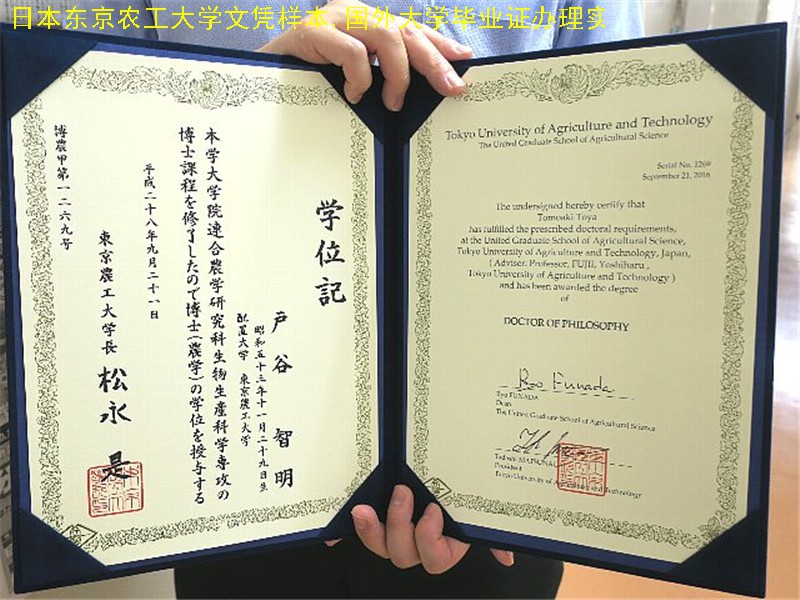 日本东京农工大学文凭样本,国外大学毕业证办理实
学位記
戸谷智明
昭和五十三年十一月二十九日生
配置大学 東京農工大学
本学大学院連合農学研究科生物生産科学専攻の
博士課程を修了したので博士(農学)の学位を授与する
平成二十八年九月二十一日
東京農工大学長 松永是
博農甲第一二六九号
Tokyo University of Agriculture and Technology
The United Graduate School of Agricultural Science
Serial No. 1269
September 21, 2016
The undersigned hereby certify that
Tomoaki Toya
has fulfilled the prescribed doctoral requirements,
at the United Graduate School of Agricultural Science,
Tokyo University of Agriculture and Technology, Japan,
( Adviser: Professor, FUJII, Yoshiharu ,
Tokyo University of Agriculture and Technology )
and has been awarded the degree
of
DOCTOR OF PHILOSOPHY
Ryo Funada
Ryo FUNADA
Dean
The United Graduate School of Agricultural Science
Tadashi MATSUNAGA
President
Tokyo University of Agriculture and Technology